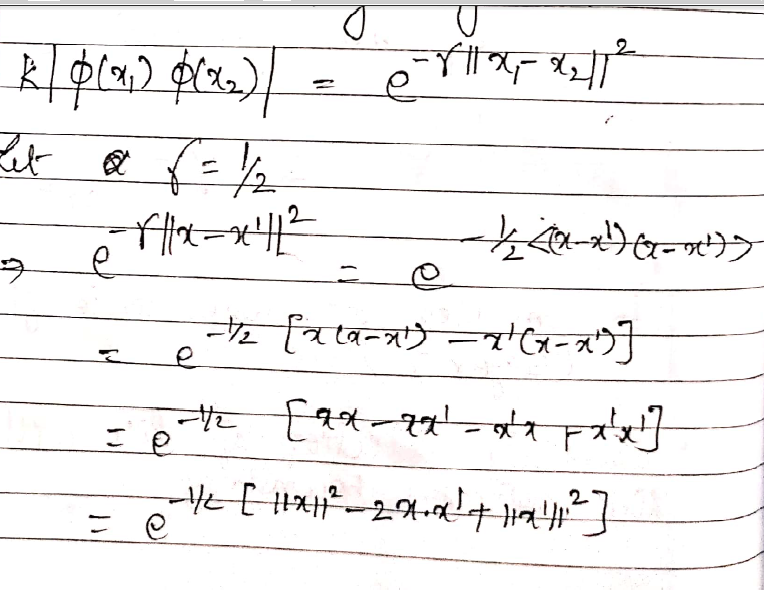 k|φ(x₁) φ(x₂)| = e^-γ||x₁-x₂||²
Let γ = 1/2
⇒ e^-γ||x-x'||² = e^-1/2 <(x-x')(x-x')>
= e^-1/2 [x(x-x') - x'(x-x')]
= e^-1/2 [xx - xx' - x'x + x'x']
= e^-1/2 [||x||² - 2x.x' + ||x'||²]